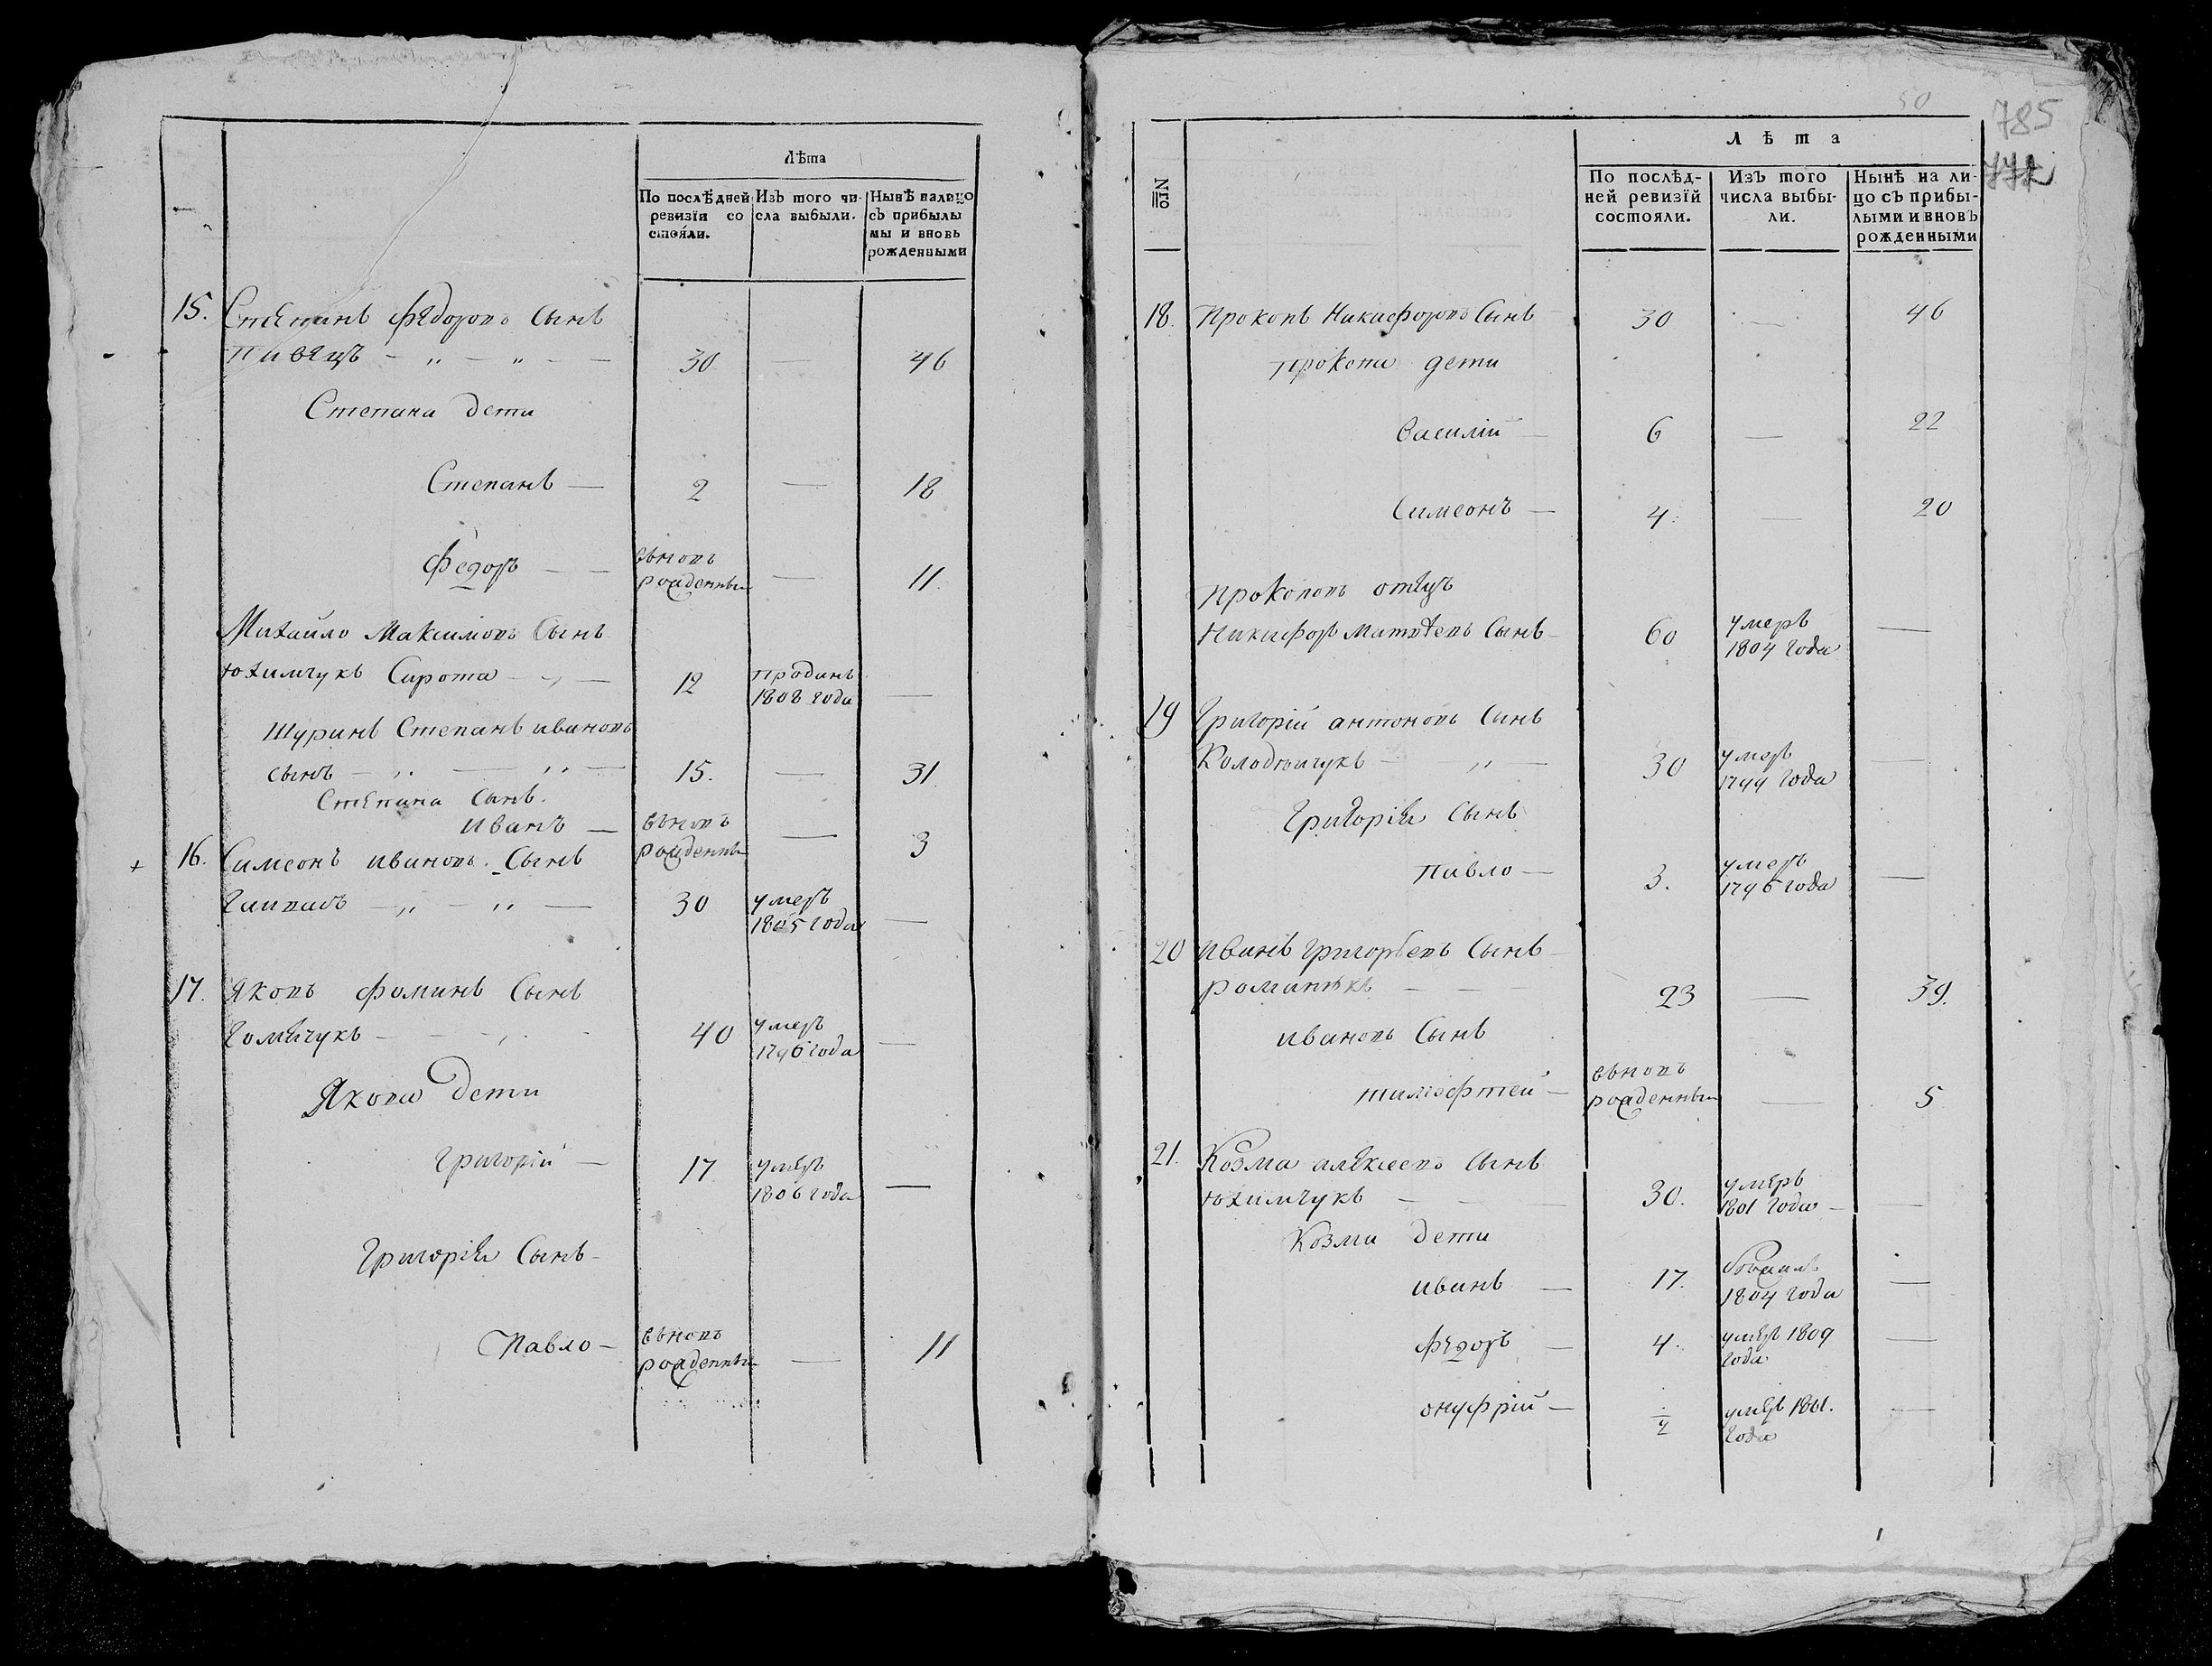 Лѣта
По послѣдней ревизіи со стояли.
Изъ того чи сла выбыли.
Нынѣ налицо съ прибылы ми и вновь рожденными
15. Степанъ Федоровъ Сынъ
Пивецъ 30 46
Степана дети
Степанъ — 2 — 18
Федоръ — вьновъ рожденный — 11.
Михайло Максимовъ Сынъ
Юхимчукъ Сирота — 12 проданъ 1808 года —
Шуринъ Степанъ ивановъ
сынъ — 15. — 31
Степана Сынъ.
Иванъ — вьновъ рожденны — 3
16. Симеонъ ивановъ Сынъ
30 умеръ 1805 года —
17. Яковъ Фоминъ Сынъ
40 умеръ 1796 года —
Якова Дети
Григорій — 17 умеръ 1806 года —
Григорія Сынъ —
Павло — вьновъ рожденны — 11
50
785
772
№го
Лѣта
По послѣд-ней ревизій состояли.
Изъ того числа выбы-ли.
Нынѣ на ли-цо съ прибы-лыми и вновь рожденными
18. Прокопъ Никифоровъ Сынъ 30 — 46
Прокопа дети
Василій — 6 — 22
Симеонъ — 4 — 20
Прокоповъ отецъ
Никифоръ Матвѣевъ Сынъ — 60 умеръ 1804 года —
19 Григорій антоновъ Сынъ
Колодюичукъ — 30 умеръ 1799 года —
Григорія Сынъ
Павло — 3. умеръ 1796 года —
20 Иванъ Григорьевъ Сынъ
романюкъ — 23 — 39.
ивановъ Сынъ
тимофтей — вьновъ рожденны — 5
21. Козма алексеевъ Сынъ
Юхимчукъ — 30. умеръ 1801 года —
Козми дети
иванъ — 17. 1804 года —
Федоръ — 4. умеръ 1809 года —
онуфрій — умеръ 1801. года —